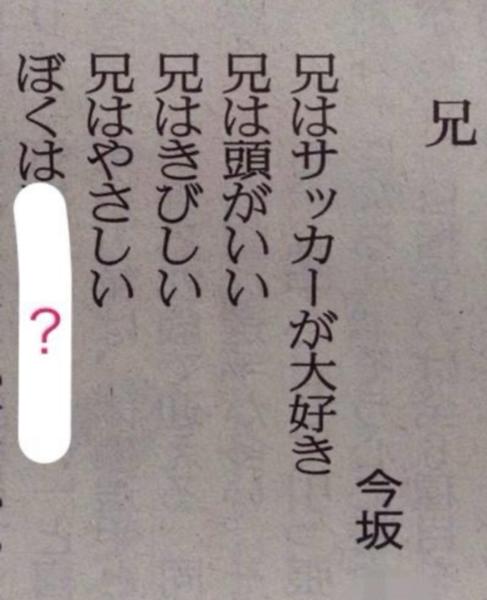 兄
今坂
兄はサッカーが大好き
兄は頭がいい
兄はきびしい
兄はやさしい
ぼくは
?